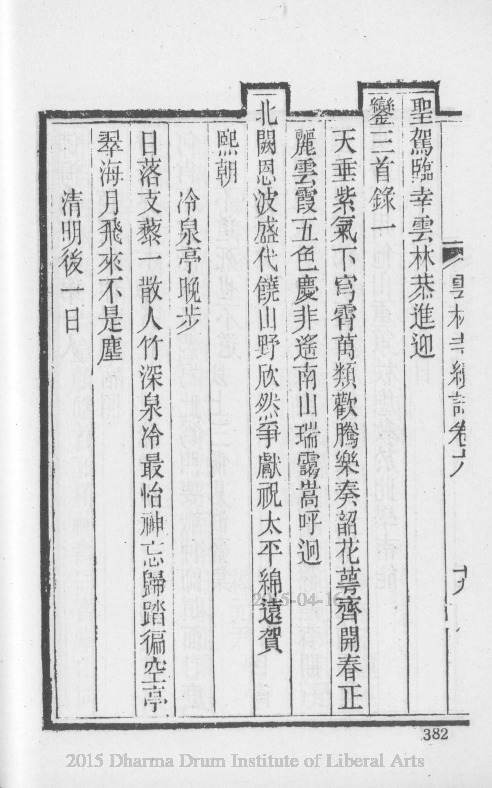 雲林寺續誌卷六 十九
聖駕臨幸雲林恭進迎
鑾三首錄一
天垂紫氣下穹霄萬類歡騰樂奏韶花萼齊開春正
麗雲霞五色慶非遙南山瑞靄嵩呼迥
北闕恩波盛代饒山野欣然爭獻祝太平綿遠賀
熙朝
冷泉亭晚步
日落支藜一散人竹深泉冷最怡神忘歸踏徧空亭
翠海月飛來不是塵
清明後一日
2015-04-16
382
2015 Dharma Drum Institute of Liberal Arts